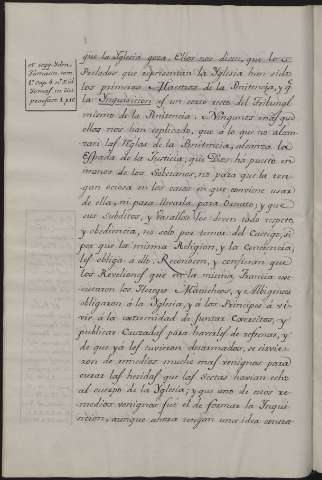 que la Yglesia goza. Ellos nos dicen, que los
Prelados que representan la Yglesia han sido
los primeros Maestros de la Penitencia, y q.e
la Inquisicion es un cierto resto del Tribunal
mismo de la Penitencia. Ningunos mas que
ellos nos han explicado, que à lo que no alcan-
zan las Reglas de la Penitencia, alcanza la
Espada de la Justicia, que Dios ha puesto en
manos de los Soberanos, no para que la ten-
gan ociosa en los casos en que conviene usar
de ella, ni para llevarla para Ornato; y que
sus Subditos, y Vasallos les deven todo respeto,
y obediencia, no solo por temor del Castigo, si
por que la misma Religion, y la Conciencia
les obliga à ello. Reconocen, y confiesan que
los Reveliones que en la misma Francia exe-
cutaron los Hereges Manicheos, y Albigenses
obligaron à la Yglesia, y à los Principes à ser-
vir à la extremidad de juntar Exercitos, y
publicar Cruzadas para hacerles
de que ya les tuvieron desarmados, se sirvie-
ron de remedios mucho mas venignos para
curar las heridas que las Sectas havian echo
al cuerpo de la Yglesia; y que uno de estos re-
medios venignos fue el de formar la Inqui-
sicion, aunque ahora tengan una idea contra